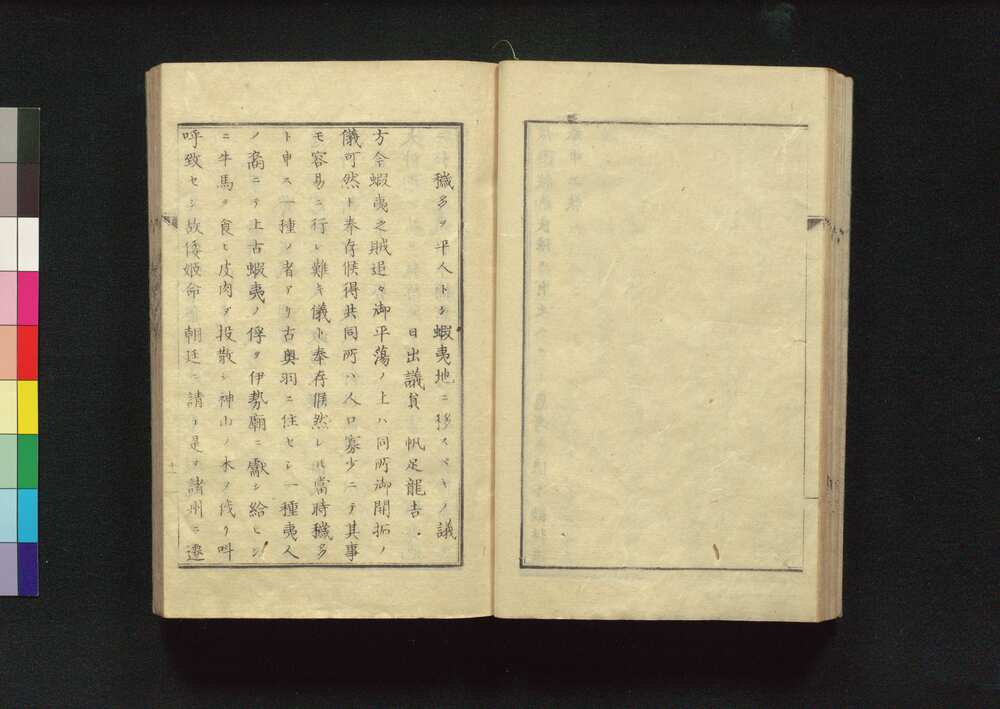 穢多ヲ平人トシ蝦夷地ニ移スベキノ議
日出議員 帆足龍吉
方今蝦夷之賊追々御平蕩ノ上ハ同所御開拓ノ
儀可然ト奉存候得共同所ハ人口寡少ニテ其事
モ容易ニ行レ難キ儀ト奉存候然レハ當時穢多
ト申ス一種ノ者アリ古奥羽ニ住セシ一種夷人
ノ裔ニテ上古蝦夷ノ俘ヲ伊勢廟ニ獻シ給ヒシ
ニ牛馬ヲ食ヒ皮肉ヲ投散シ神山ノ木ヲ伐リ叫
呼致セシ故倭姫命朝廷ニ請テ是ヲ諸州ニ遷
十一